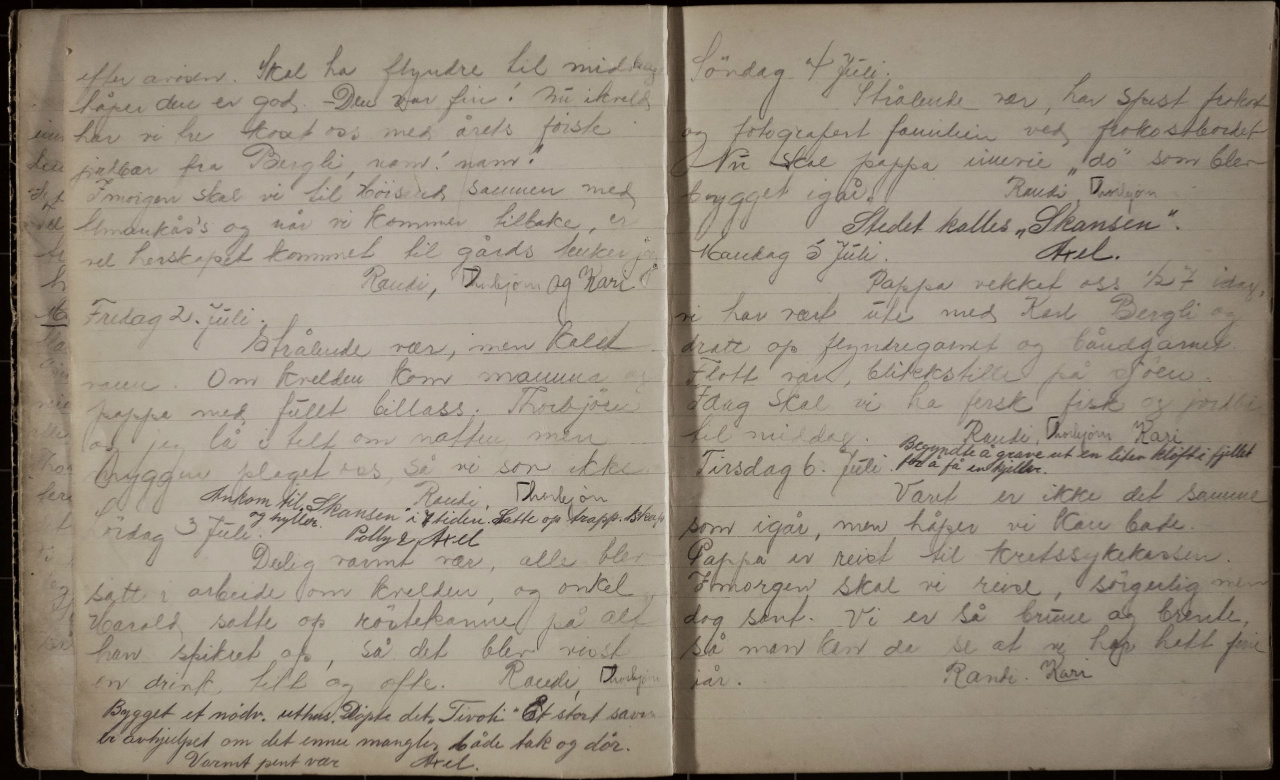 efter avisen. Skal ha flyndre til middag
håper den er god. – Den var fin! Nu ikveld
har vi tre koset oss med årets første
jordbær fra Bergli, nam! nam!
Imorgen skal vi til sammen med
og når vi kommer tilbake, er
vel herskapet kommet til gårds tenker jeg
Randi, Thorbjørn og Kari
Fredag 2. Juli.
Strålende vær, men kaldt
Om kvelden kom mamma og
pappa med fullt billass. Thorbjörn
og jeg lå i telt om natten, men
myggene plaget oss, så vi sov ikke
Randi, Thorbjørn
Ankom til "Skansen" i 7 tiden. Satte op trapp. Skap
og hyller. Polly & Axel
Lördag 3 Juli.
Deilig varmt vær, alle blev
satt i arbeide om kvelden, og onkel
Harald satte op röstekanne på alt
han spikret op, så det blev visst
en drink titt og ofte. Randi, Thorbjørn
Bygget et nödv. uthus. Döpte det "Tivoli" Et stort savn
er avhjulpet om det ennu mangler både tak og dör.
Varmt pent vær Axel.
Söndag 4 Juli.
Strålende vær, har spist frokost
og fotografert familien ved frokostbordet
Nu skal pappa innvie "do" som blev
bygget igår. Randi, Thorbjørn
Stedet kalles "Skansen".
Mandag 5 Juli. Axel.
Pappa vekket oss 1/2 7 idag,
vi har vært ute med Karl Bergli og
dratt op flyndregarnet og båndgarnet
Flott vær, blickstille på sjöen.
Idag skal vi ha fersk fisk og jordbær
til middag. Randi, Thorbjørn Kari
Begyndte å grave ut en liten klöft i fjellet
for å få en kjeller.
Tirsdag 6. Juli
Været er ikke det samme
som igår, men håper vi kan bade.
Pappa er reist til Kretssykekassen.
Imorgen skal vi reise, sörgelig men
dog sant. Vi er så brune og brente,
så man kan da se at vi har hatt fint
iår. Randi. Kari